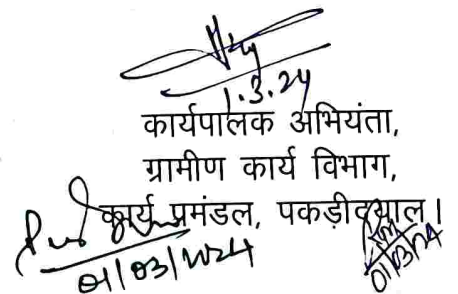 1.3.24
कार्यपालक अभियंता,
ग्रामीण कार्य विभाग,
कार्य प्रमंडल, पकड़ीदयाल।
01/03/2024
01/03/24